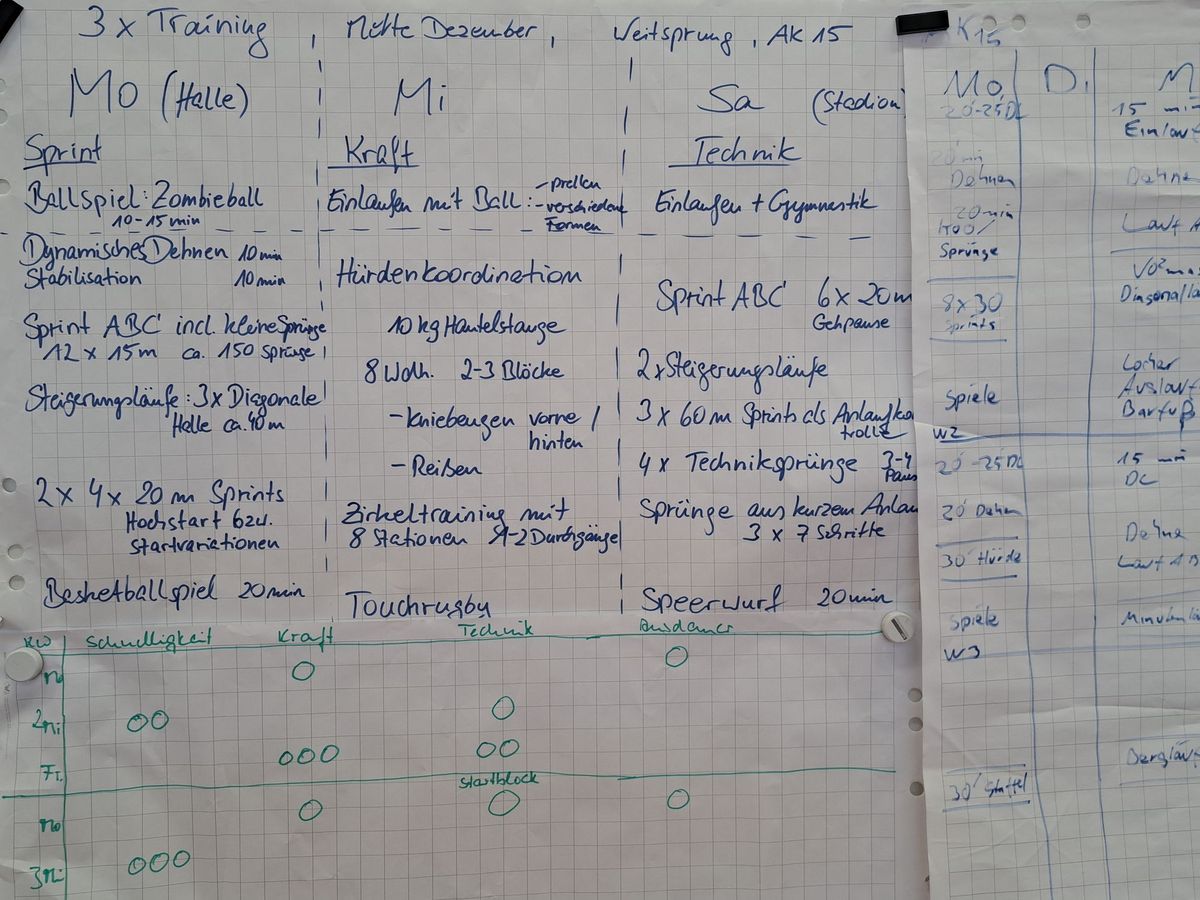 3 x Training , Mitte Dezember, Weitsprung, AK 15
Mo (Halle)
Sprint
Ballspiel: Zombieball
10-15 min
Dynamisches Dehnen 10 min
Stabilisation 10 min
Sprint ABC incl. kleine Sprünge
12 x 15m ca. 150 Sprünge
Steigerungsläufe: 3x Diagonale
Halle ca. 40m
2 x 4 x 20 m Sprints
Hochstart bzw.
Startvariationen
Basketballspiel 20min
Mi
Kraft
Einlaufen mit Ball: - prellen
- verschiedene
Formen
Hürdenkoordination
10 kg Hantelstange
8 Wdh. 2-3 Blöcke
- Kniebeugen vorne /
hinten
- Reißen
Zirkeltraining mit
8 Stationen 1-2 Durchgänge
Touchrugby
Sa (Stadion)
Technik
Einlaufen + Gymnastik
Sprint ABC 6 x 20m
Gehpause
2x Steigerungsläufe
3 x 60 m Sprints als Anlaufko
trolle
4 x Techniksprünge 3-4
Paus
Sprünge aus kurzem Anlau
3 x 7 Schritte
Speerwurf 20min
KW Schnelligkeit Kraft Technik Ausdauer
Mo
2 Mi
Fr.
Startblock
Mo
3 Mi
K15
Mo Di M
20'-25' DL
20 min
Dehnen
20 min
Sprünge
8x30
Sprints
Spiele
W2
20'-25' DL
20' Dehnen
30' Hürde
Spiele
W3
30' Staffel
15 min
Einlauf
Dehne
Lauf A
VO²ma
Diagonalla
Locker
Auslauf
Barfuß
15 min
DL
Dehne
Lauf AB
Minutenlä
Bergläuf